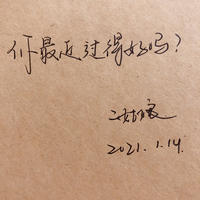 你最近过得好吗？
2021.1.14.